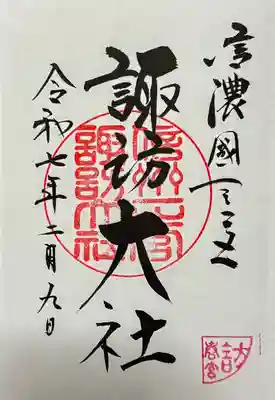 信濃國一之宮
諏訪大社
令和七年二月九日